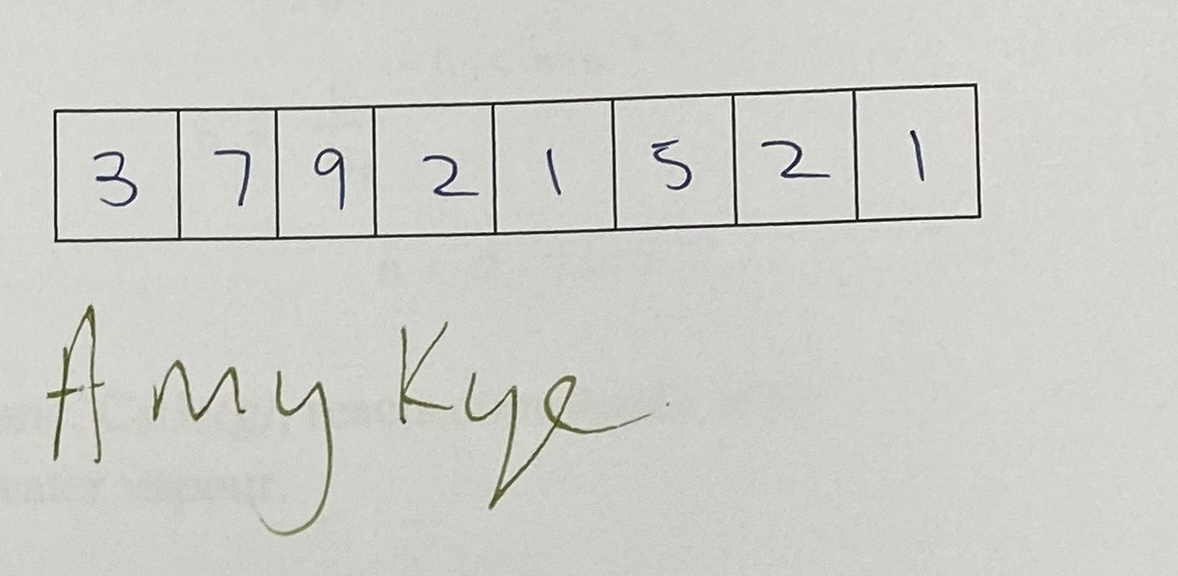 3 7 9 2 1 5 2 1
Amy Kye